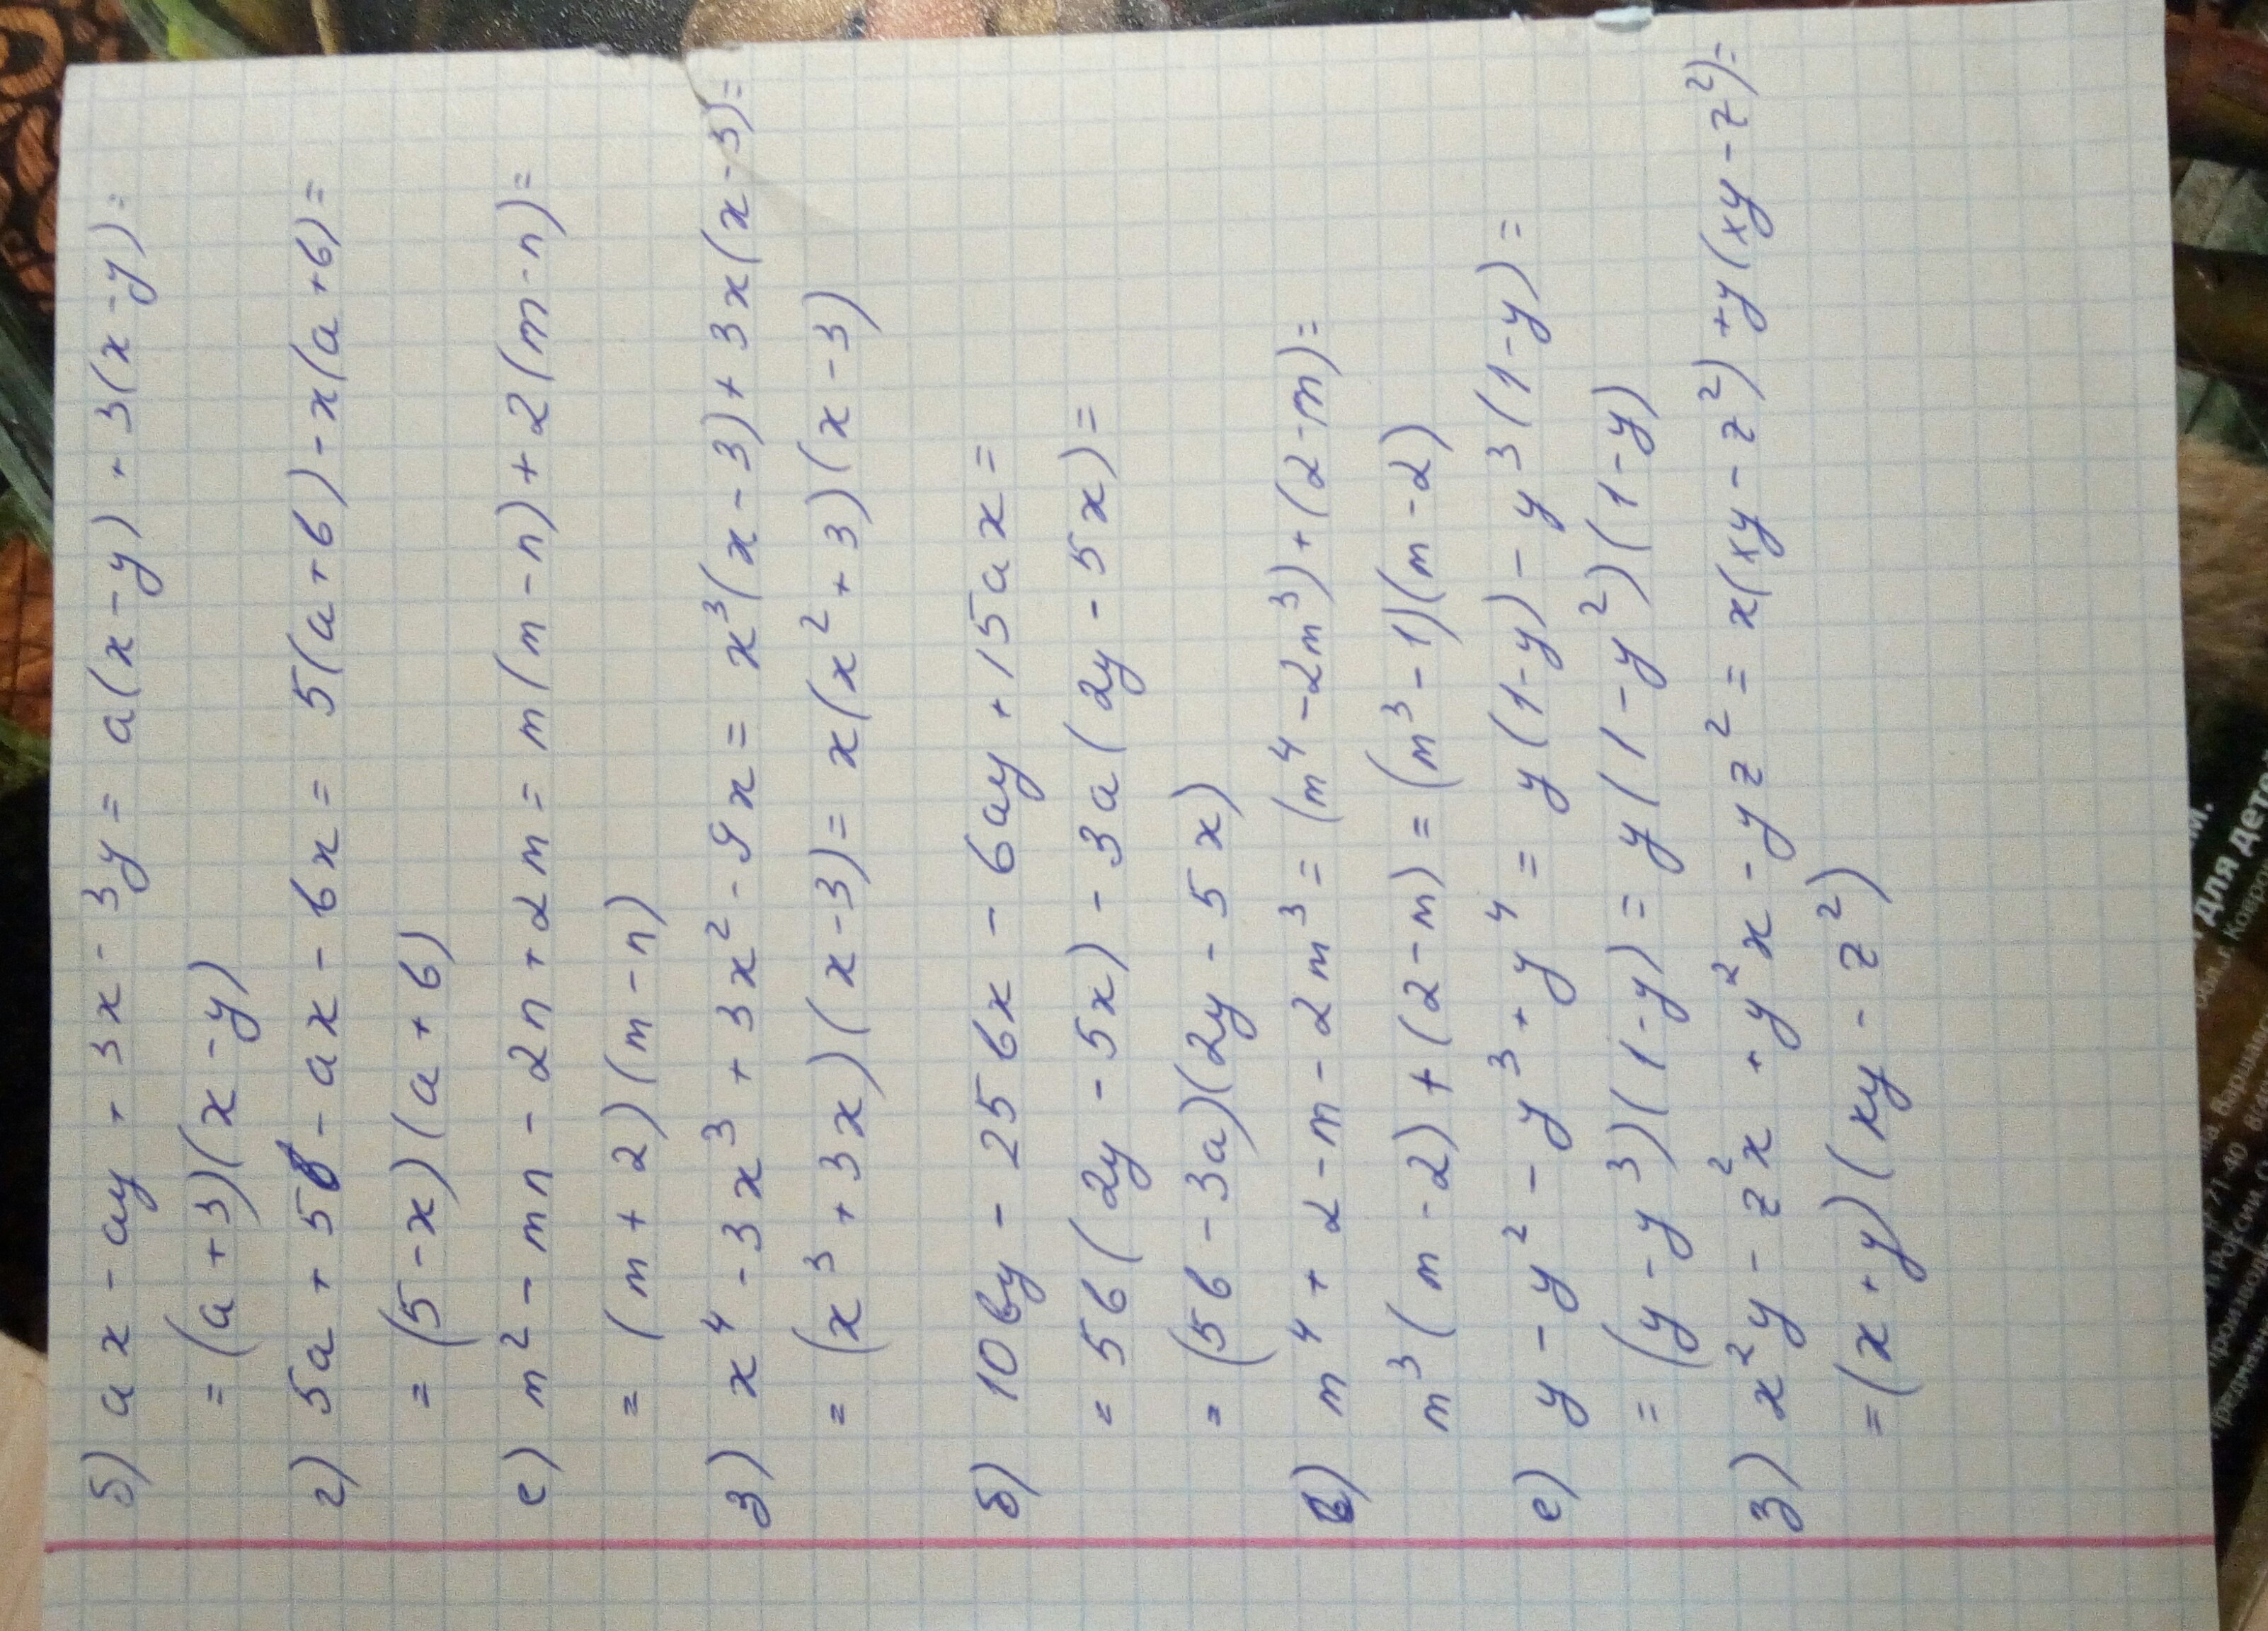 б) ax - ay + 3x - 3y = a(x - y) + 3(x - y) =
= (a + 3)(x - y)
г) 5a + 5b - ax - bx = 5(a + b) - x(a + b) =
= (5 - x)(a + b)
е) m² - mn - 2n + 2m = m(m - n) + 2(m - n) =
= (m + 2)(m - n)
з) x⁴ - 3x³ + 3x² - 9x = x³(x - 3) + 3x(x - 3) =
= (x³ + 3x)(x - 3) = x(x² + 3)(x - 3)
б) 10by - 25bx - 6ay + 15ax =
= 5b(2y - 5x) - 3a(2y - 5x) =
= (5b - 3a)(2y - 5x)
в) m⁴ + 2 - m - 2m³ = (m⁴ - 2m³) + (2 - m) =
m³(m - 2) + (2 - m) = (m³ - 1)(m - 2)
е) y - y² - y³ + y⁴ = y(1 - y) - y³(1 - y) =
= (y - y³)(1 - y) = y(1 - y²)(1 - y)
з) x²y - z²x + y²x - yz² = x(xy - z²) + y(xy - z²) =
= (x + y)(xy - z²)
Для дете